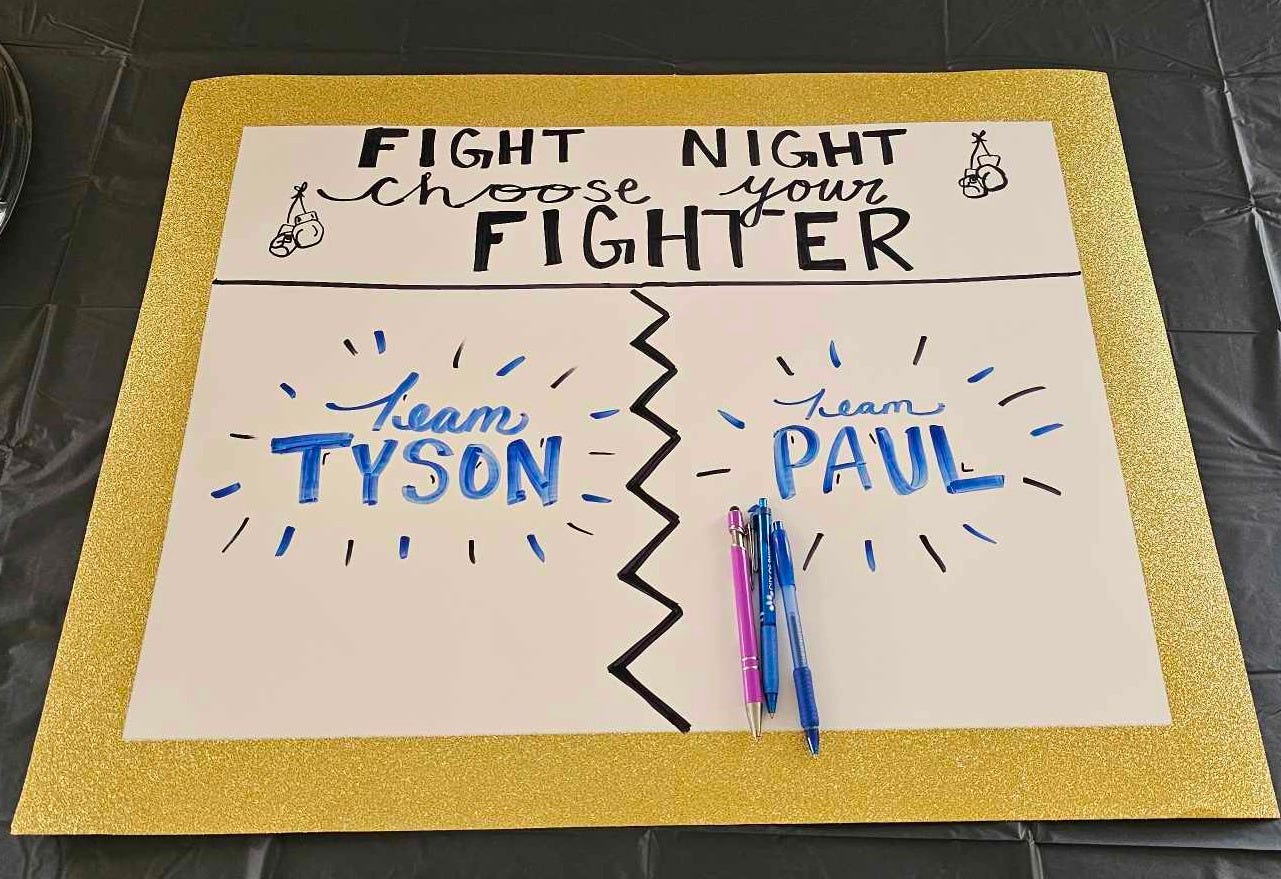 FIGHT NIGHT
choose your
FIGHTER
team
TYSON
team
PAUL